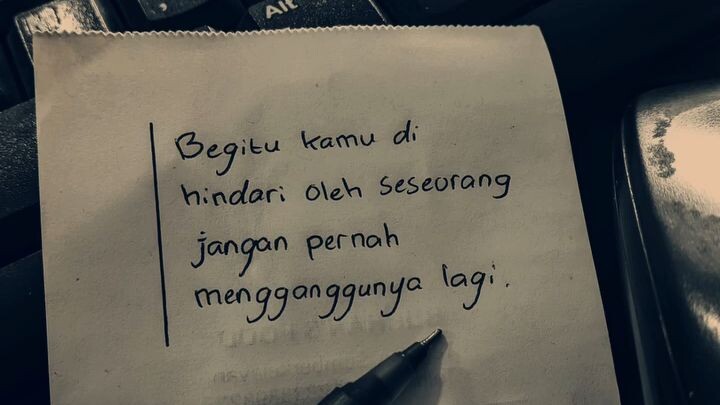 Alt
Begitu kamu di
hindari oleh seseorang
jangan pernah
mengganggunya lagi.